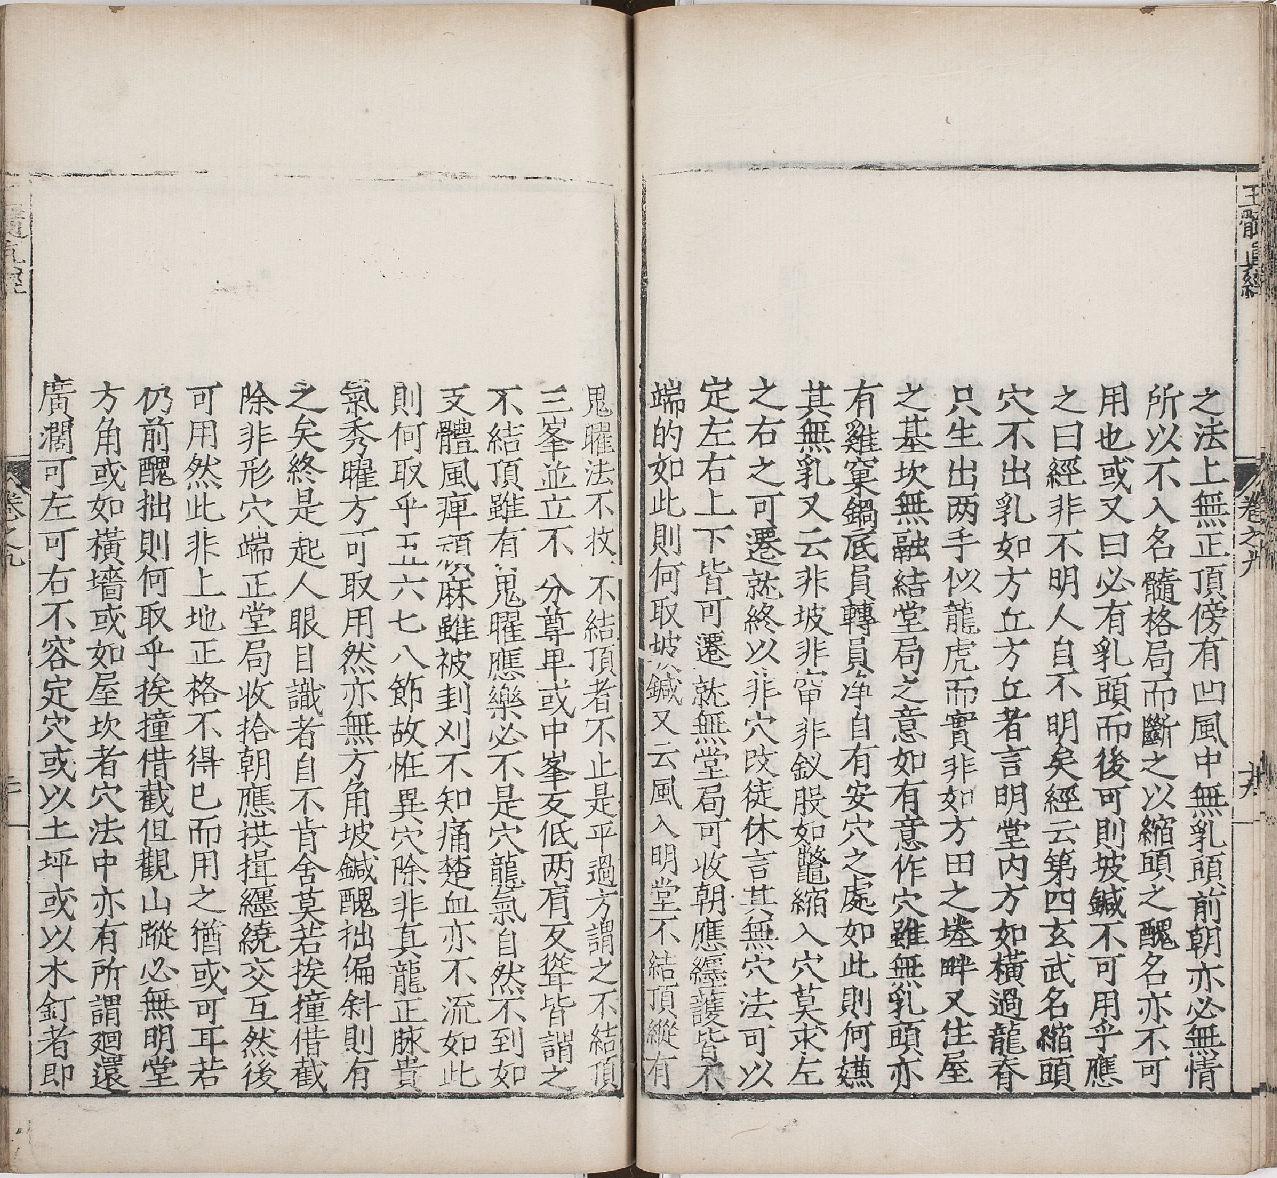 玉髓真經
卷之九
之法上無正頂傍有凹風中無乳頭前朝亦必無情
所以不入名髓格局而斷之以縮頭之醜名亦不可
用也或又曰必有乳頭而後可則坡鍼不可用乎應
之曰經非不明人自不明矣經云第四玄武名縮頭
穴不出乳如方丘方丘者言明堂内方如橫過龍脊
只生出两手似龍虎而實非如方田之塍畔又住屋
之基坎無融結堂局之意如有意作穴雖無乳頭亦
有雞窠鍋底員轉員淨自有安穴之處如此則何嫌
其無乳又云非坡非窜非釵股如鼈縮入穴莫求左
之右之可遷就終以非穴改徒休言其無穴法可以
定左右上下皆可遷就無堂局可收朝應纒護皆不
端的如此則何取坡鍼又云風入明堂不結頂縱有
鬼曜法不救不結頂者不止是平過方謂之不結頂
三峯並立不分尊卑或中峯反低两肩反聳皆謂之
不結頂雖有鬼曜應樂必不是穴龍氣自然不到如
支體風痺頑麻雖被刲刈不知痛楚血亦不流如此
則何取乎五六七八節故恠異穴除非真龍正脉貴
氣秀曜方可取用然亦無方角坡鍼醜拙偏斜則有
之矣終是起人眼目識者自不肯舍莫若挨撞借截
除非形穴端正堂局收拾朝應拱揖纒繞交互然後
可用然此非上地正格不得已而用之猶或可耳若
仍前醜拙則何取乎挨撞借截但觀山蹤必無明堂
方角或如橫墻或如屋坎者穴法中亦有所謂廻還
廣濶可左可右不容定穴或以土坪或以木釘者即
髓真經
卷之九